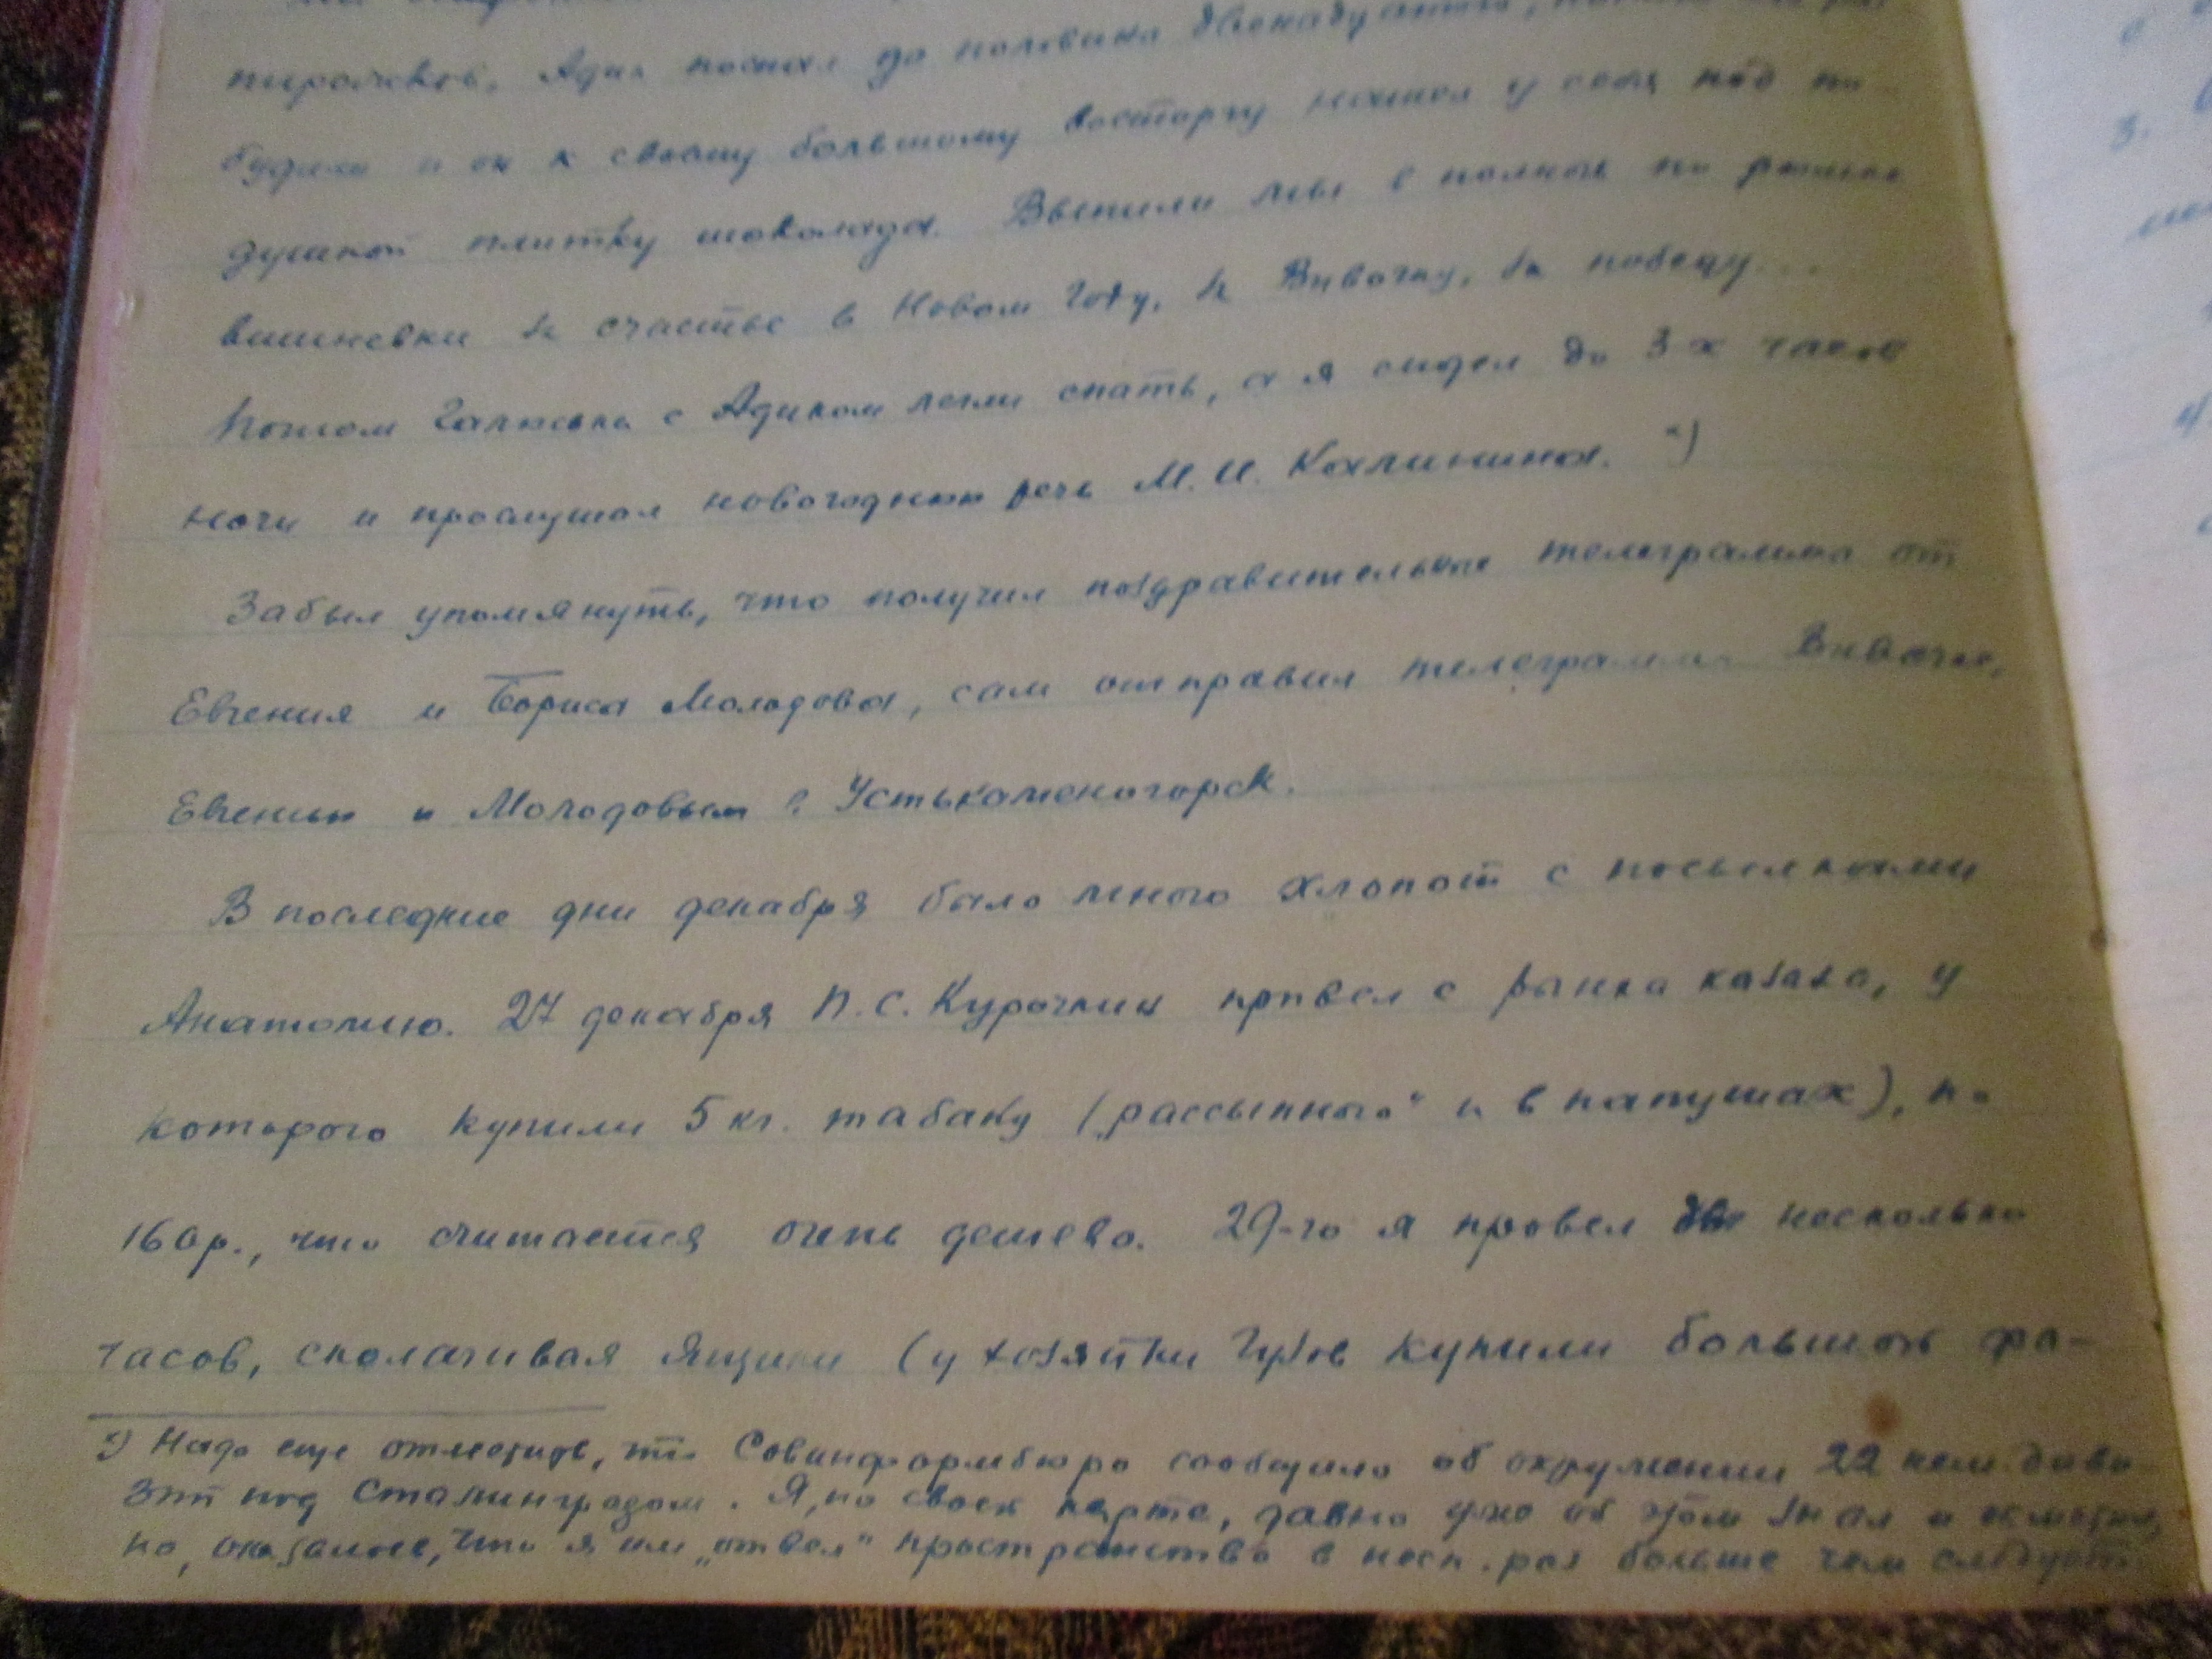 пирожков. Адик поспал до половины двенадцатого,
будили и он к своему большому восторгу нашел у себя под по-
душкой плитку шоколада. Выпили мы в полночь по рюмке
вишневки за счастье в Новом Году, за Вивочку, за победу...
Потом Галюська с Адиком легли спать, а я сидел до 3-х часов
ночи и прослушал новогоднюю речь М. И. Калинина. *)
Забыл упомянуть, что получил поздравительные телеграммы от
Евгения и Бориса Молодова, сам отправил телеграммы Вивочке,
Евгению и Молодовым в Устькаменогорск.
В последние дни декабря было много хлопот с посылками
Анатолию. 27 декабря П. С. Курочкин привел с рынка казака, у
которого купили 5 кг. табаку („рассыпного“ и в папушах), по
160 р., что считается очень дешево. 29-го я провел несколько
часов, сколачивая ящики (у хозяйки купили большой фа-
*) Надо еще отметить, что Совинформбюро сообщило об окружении 22 нем. диви-
зий под Сталинградом. Я, по своей карте, давно уже об этом знал и отметил,
но, оказалось, что я им „отвел“ пространство в неск. раз больше чем следует.